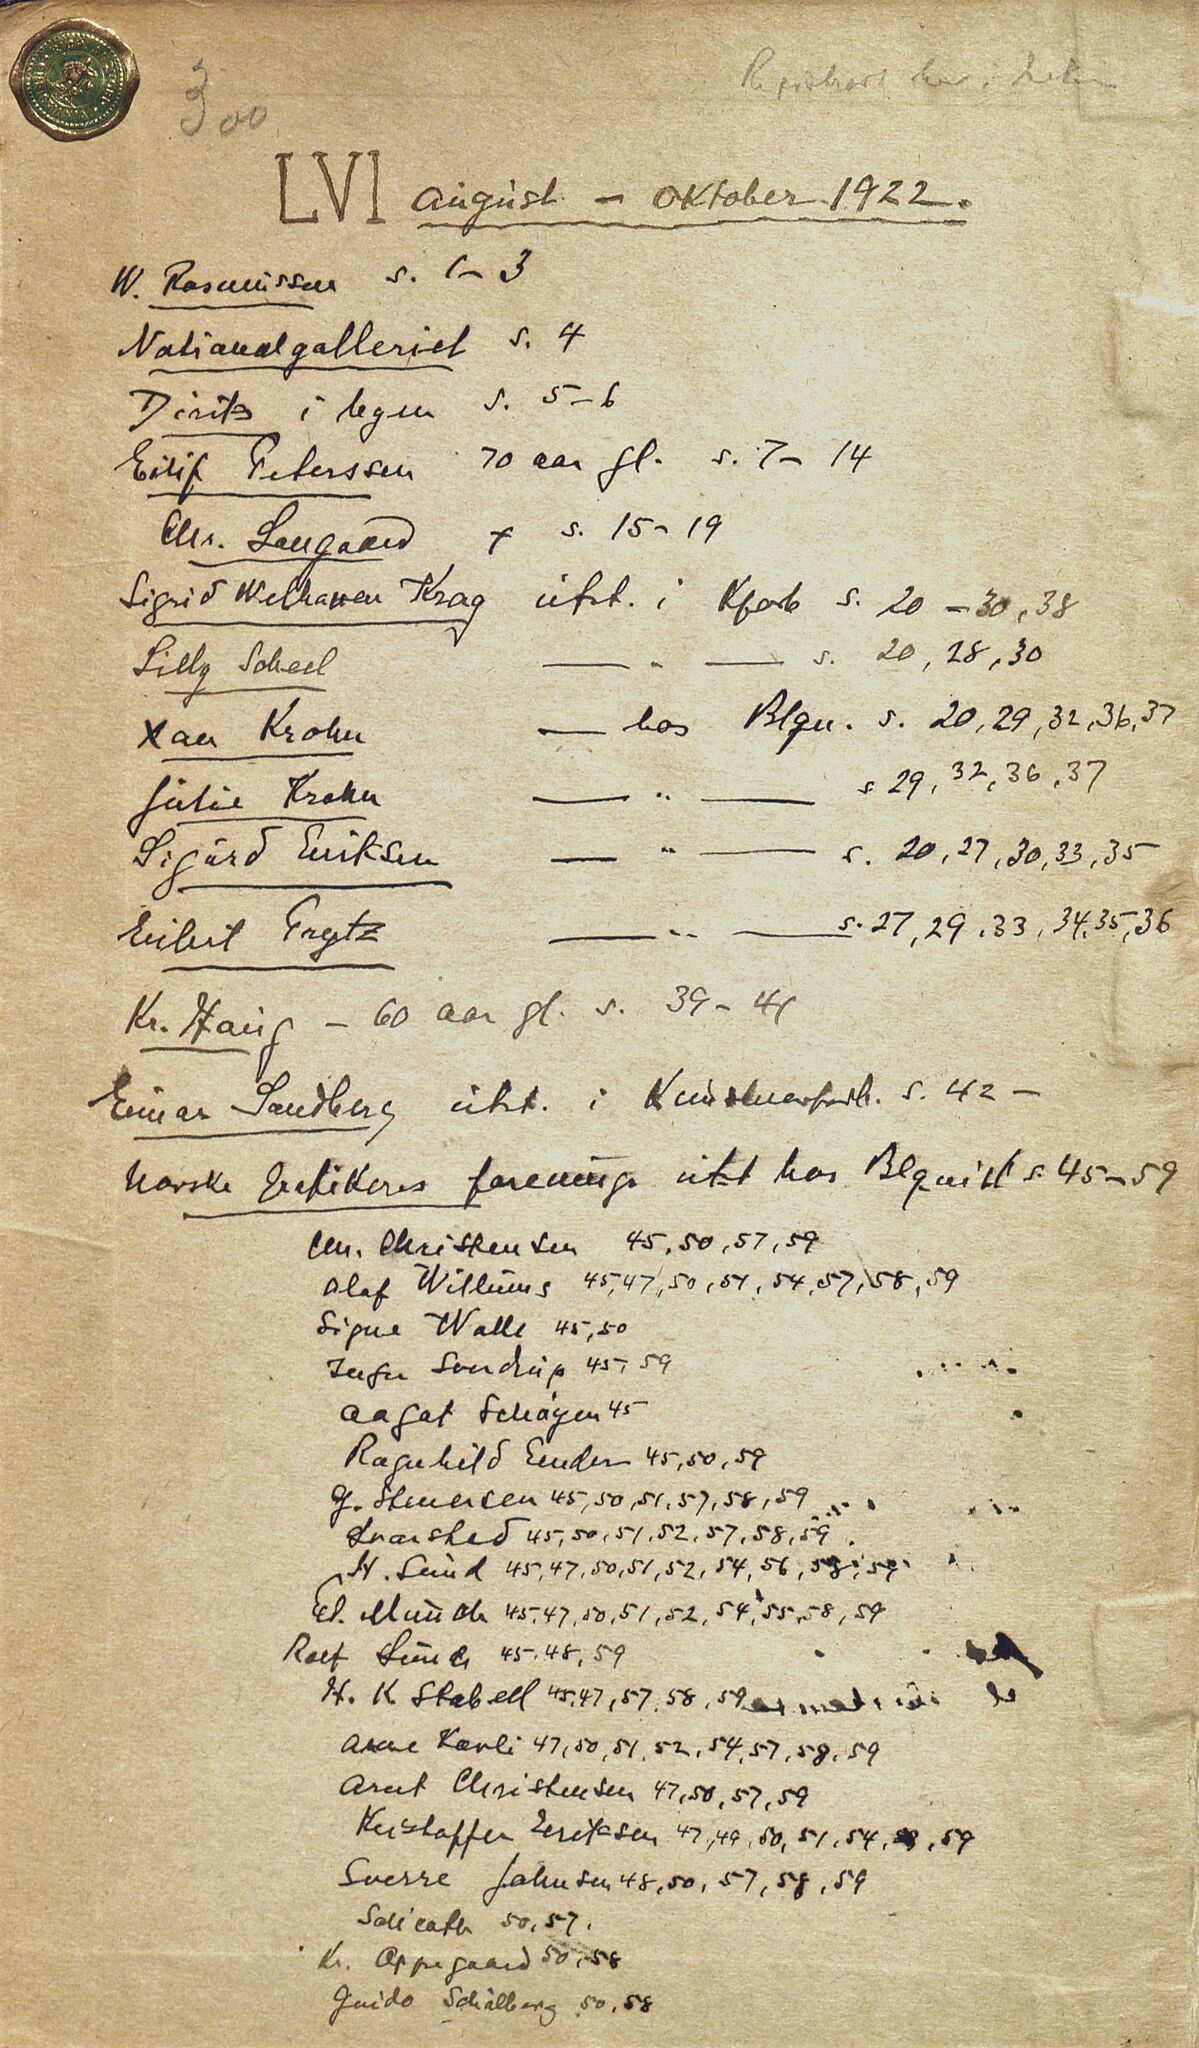 300
LVI august – oktober 1922.
W. Rasmussen s. 1–3
Nationalgalleriet s. 4
Diriks i legen s. 5–6
Eilif Peterssen 70 aar gl. s. 7– 14
Chr. Langaard + s. 15– 19
Sigrid Welhaven Krag utst. i Kforb s. 20 –30, 38
Lilly Scheel — " — s. 20, 28, 30
Xan Krohn — hos Blqu. s. 20, 29, 32, 36, 37
Julie Krohn — " — s. 29, 32, 36, 37
Sigurd Eriksen — " — s. 20, 27, 30, 33, 35
Eilert Trytz — " — s. 27, 29, 33, 34, 35, 36
Kr. Haug – 60 aar gl. s. 39– 41
Einar Sandberg utst. i Kunstnerforb. s. 42 –
Norske Grafikeres forening utst hos Blquist s. 45–59
Chr. Christensen 45, 50, 57, 59
Olaf Willums 45, 47, 50, 51, 54, 57, 58, 59
Signe Walle 45, 50
Inger Sverdrup 45, 59
Aagat Schøyen 45
Ragnhild Ender 45, 50, 59
G. Stenersen 45, 50, 51, 57, 58, 59
45, 50, 51, 52, 57, 58, 59
H. Lund 45, 47, 50, 51, 52, 54, 56, 58, 59
Ed. Munch 45, 47, 50, 51, 52, 54, 55, 58, 59
Rolf Lunde 45, 48, 59
H. K. Stabell 45, 47, 57, 58, 59
Arne Kavli 47, 50, 51, 52, 54, 57, 58, 59
Arent Christensen 47, 50, 57, 59
Kristoffer Eriksen 47, 49, 50, 51, 54, 59
Sverre Johnsen 48, 50, 57, 58, 59
50, 57.
Kr. Oppegaard 50, 58
Guido Schjølberg 50, 58